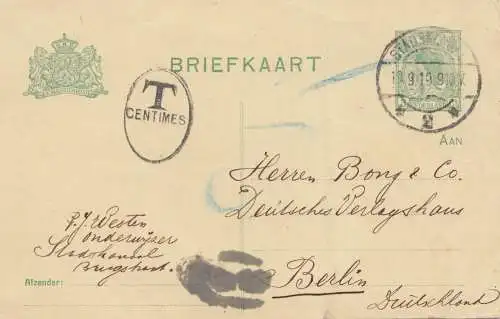 BRIEFKAART
T
CENTIMES
AAN
Herren Bong & Co.
Deutsches Verlagshaus
Berlin
Deutschland
onderwijzer
Stadskanaal
Afzender: